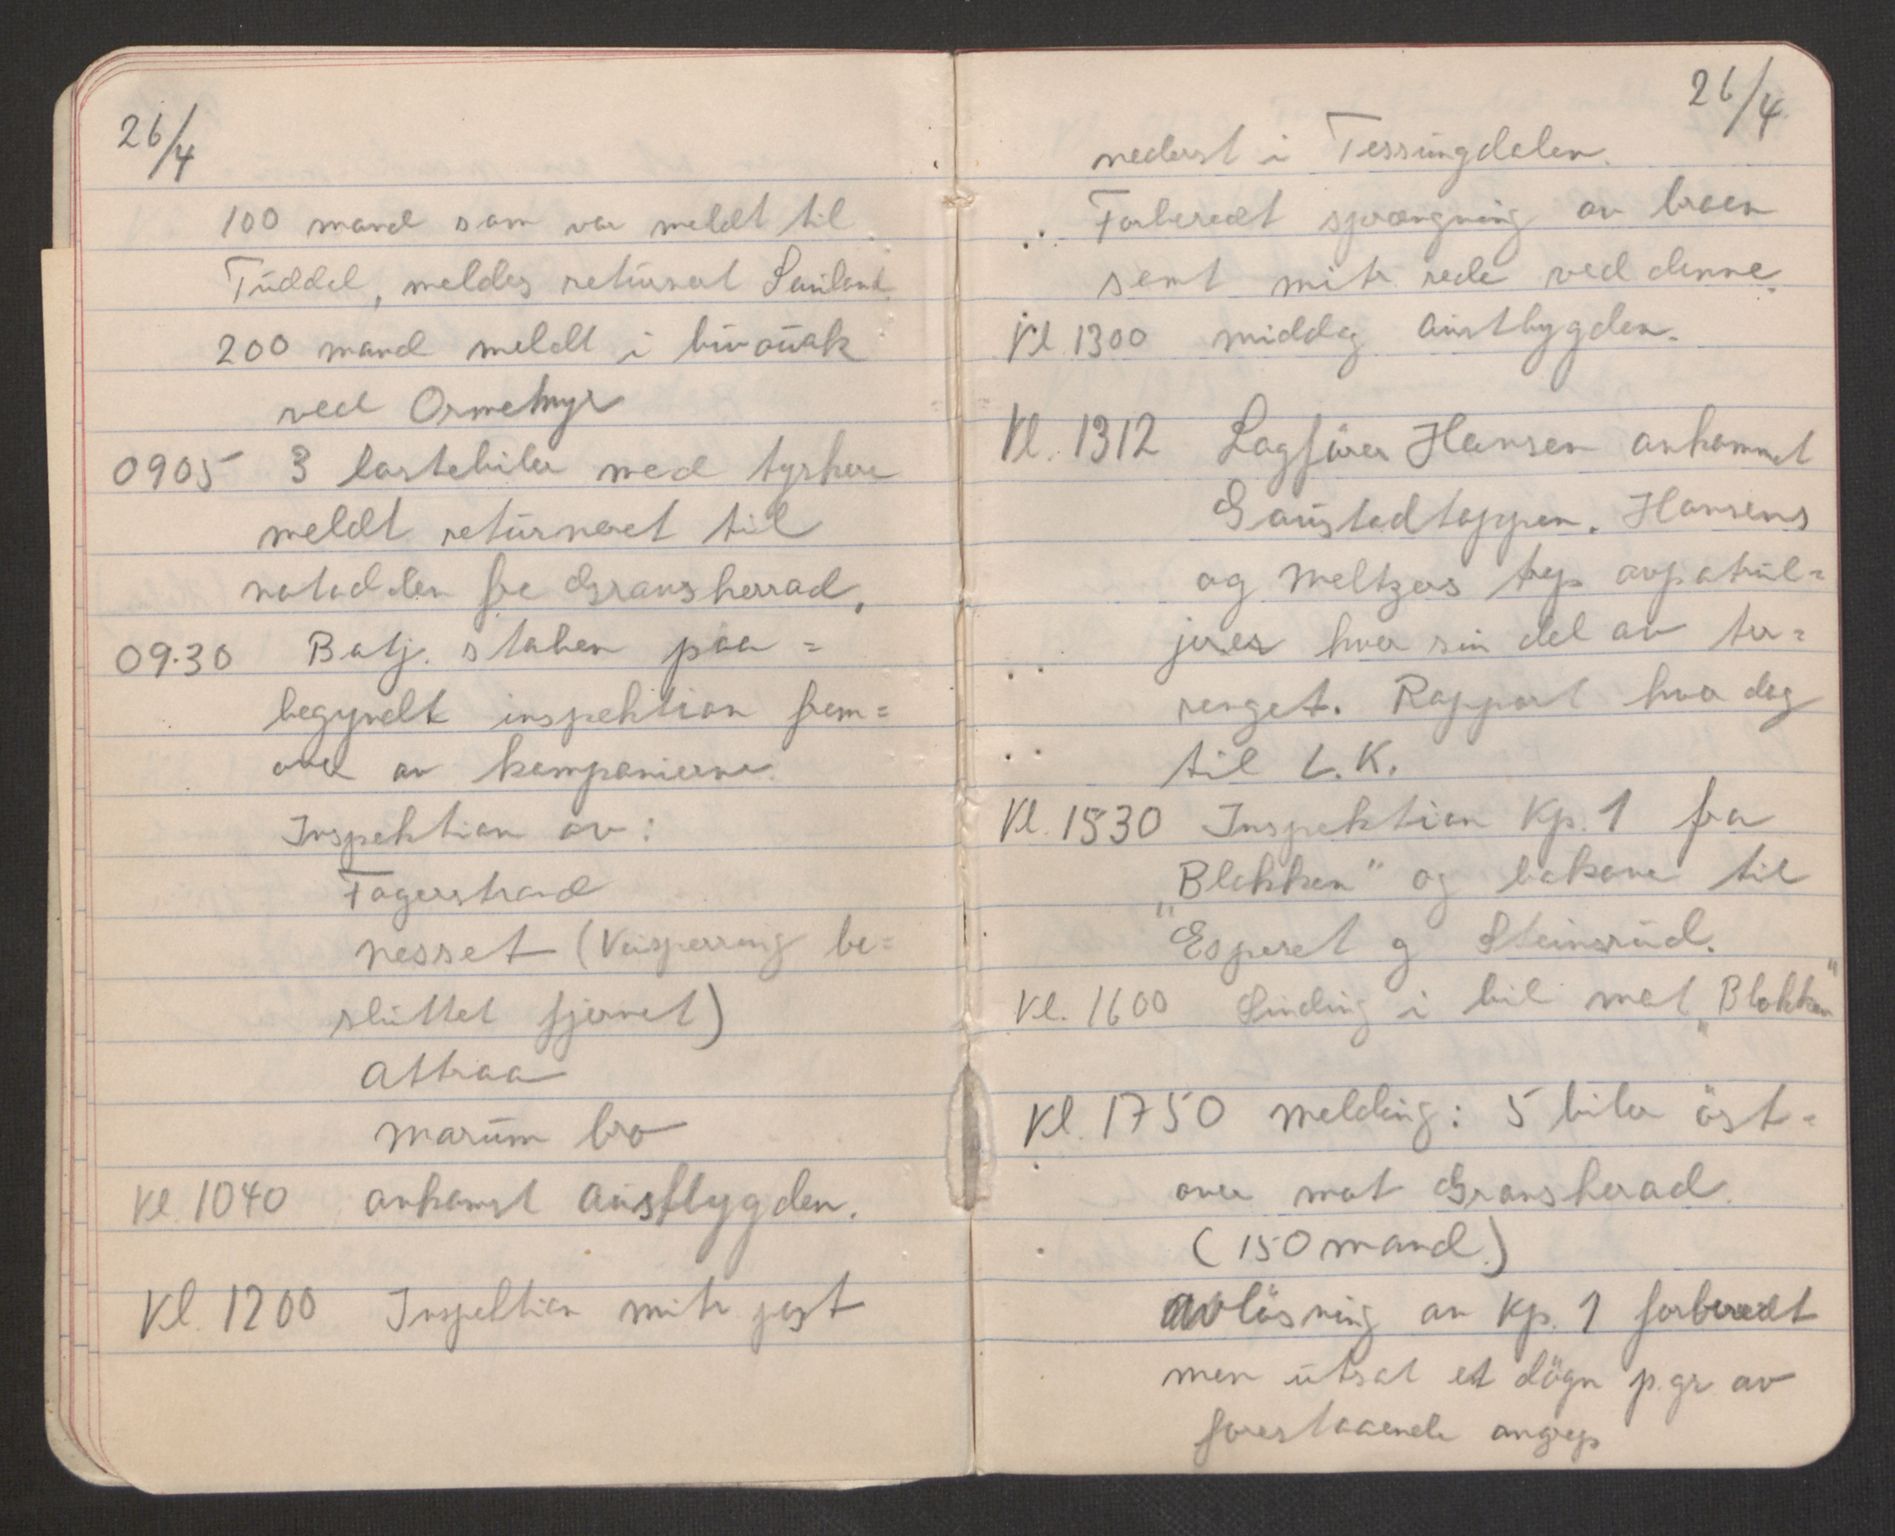 26/4
100 mand som var meldt til
Tuddal, meldes returnert Sauland.
200 mand meldt i bivouak
ved Ormemyr
0905 3 lastebiler med tyskere
meldt returneret til
notodden fra Gransherrad.
09.30 Batj. staben paa=
begyndt inspektion frem=
over av kompanierne.
Inspektion av:
Fagerstrand
nesset (Veisperring be=
sluttet fjernet)
Attraa
marum bro
Kl. 1040 ankomst Austbygden.
Kl. 1200 Inspektion mitr. post
26/4
nederst i Tessungdalen.
Forberedt sprængning av broen
samt mitr. rede ved denne.
Kl. 1300 middag Austbygden.
Kl. 1312 Lagfører Hansen ankommet
Gaustadtoppen. Hansens
og Meltzers trop avpatrul=
jerer hver sin del av ter=
renget. Rapport hver dag
til L.K.
Kl. 1530 Inspektion Kp. 1 fra
"Blokken" og bakover til
"Esperet og Steinsrud.
Kl. 1600 Sinding i bil mot "Blokken"
Kl. 1750 melding: 5 biler öst=
over mot Gransherad.
(150 mand.)
avlösning av Kp. 1 forberedt
men utsat et dögn p.gr. av
forestaaende angrep